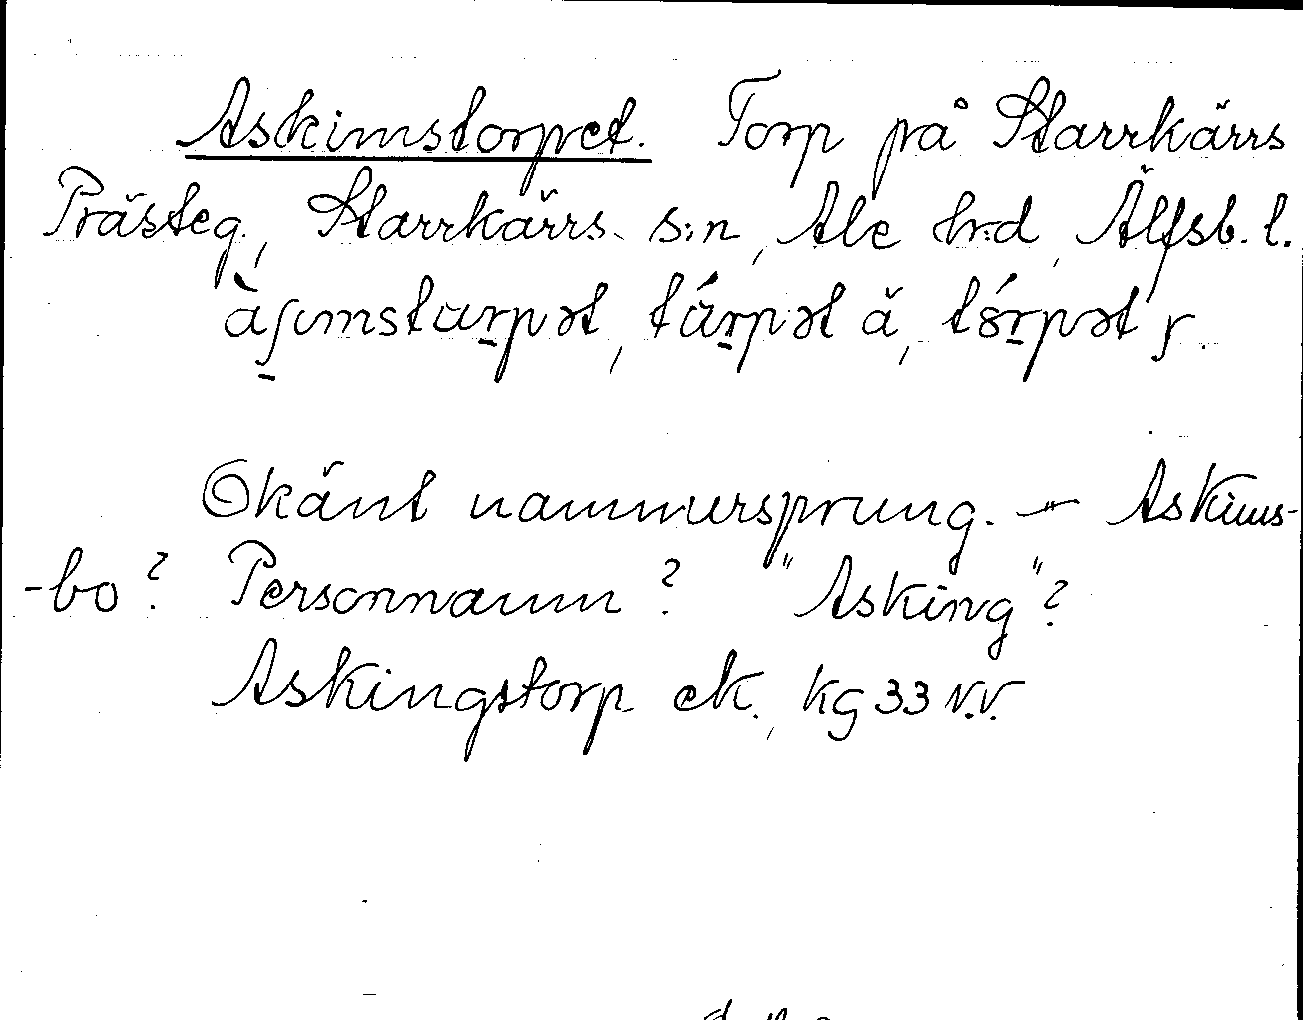 Askimstorpet. Torp på Starrkärrs
Prästeg., Starrkärrs s:n, Ale h:d, Älfsb. l.
tɑ́rpət ă,
Okänt namnursprung. – Askims-
-bo? Personnamn? "Asking"?
Askingstorp ek., kg 33 N.V.